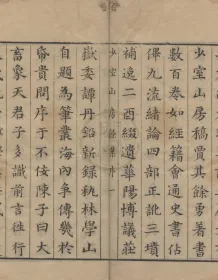 少室山房稿賈其餘勇著書
數百卷如經籍會通史書佔
九流緒論四部正訛三墳
補逸二酉綴遺華陽博議莊
少室山房　序一
嶽委譚丹鉛新錄　林學山
自題為筆叢海內爭傳幾於
貴問序于不佞陳子曰大
畜象天君子多識前言往行